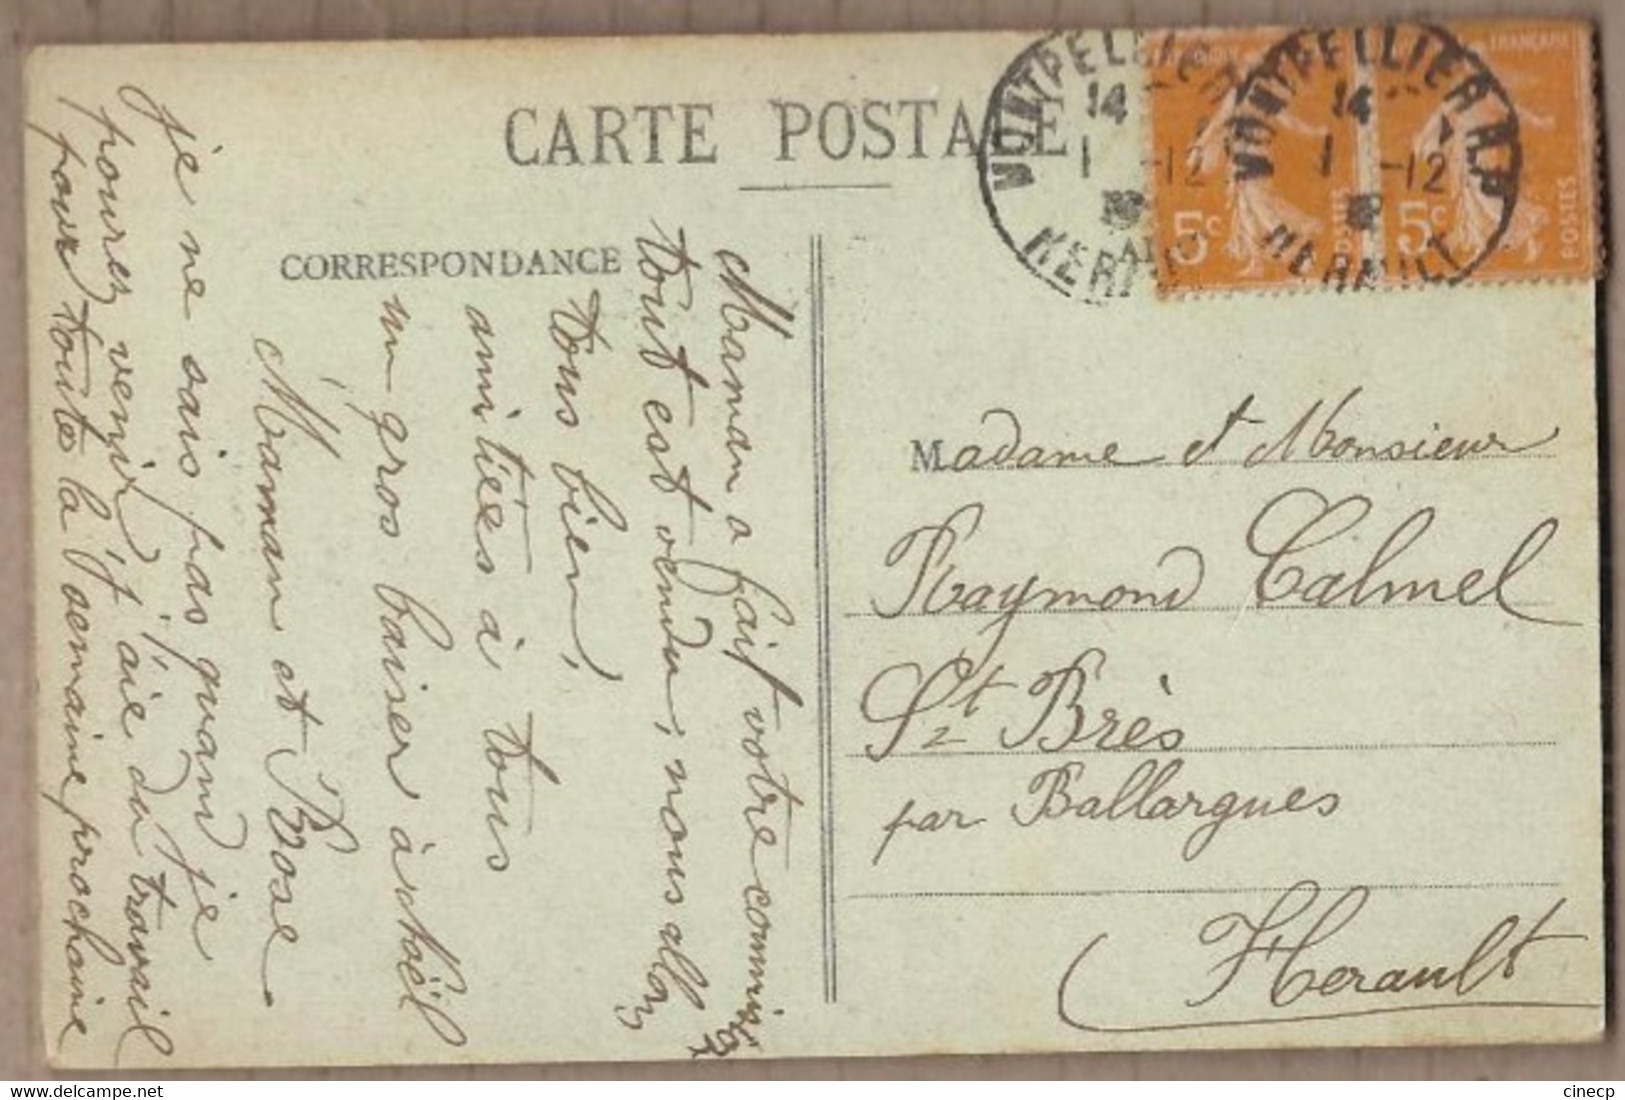 CARTE POSTALE
CORRESPONDANCE
Maman a fait votre commission
tout est vendu, nous allons
tous bien,
amitiés à tous
un gros baiser à Noël
Maman et Rose.
je ne sais pas quand je
pourrez venir, j'aie du travail
pour toute la semaine prochaine
MONTPELLIER R.P
14
1 -12
HERAULT
MONTPELLIER R.P
14
1 -12
HERAULT
5c
5c
FRANÇAISE
POSTES
Madame et Monsieur
Raymond Calmel
St Brès
par Ballargues
Herault
cinecp